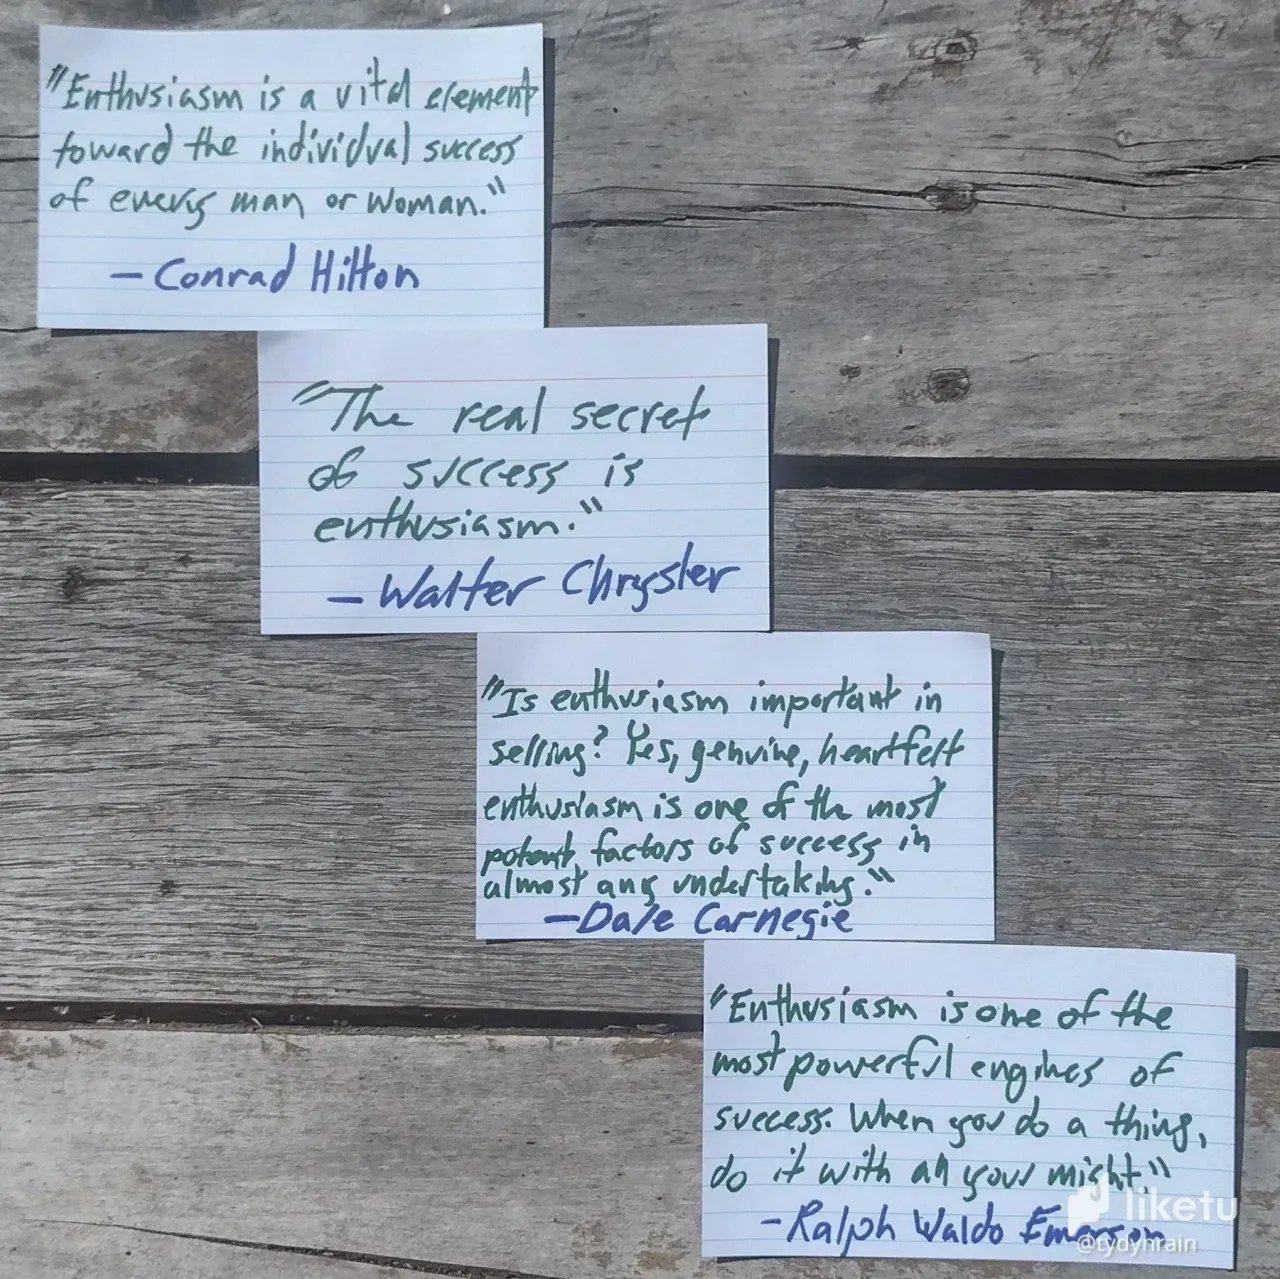 "Enthusiasm is a vital element
toward the individual success
of every man or woman."
— Conrad Hilton
"The real secret
of success is
enthusiasm."
— Walter Chrysler
"Is enthusiasm important in
selling? Yes, genuine, heartfelt
enthusiasm is one of the most
potent factors of success in
almost any undertaking."
— Dale Carnegie
"Enthusiasm is one of the
most powerful engines of
success. When you do a thing,
do it with all your might."
- Ralph Waldo Emerson
liketu
@tydynrain